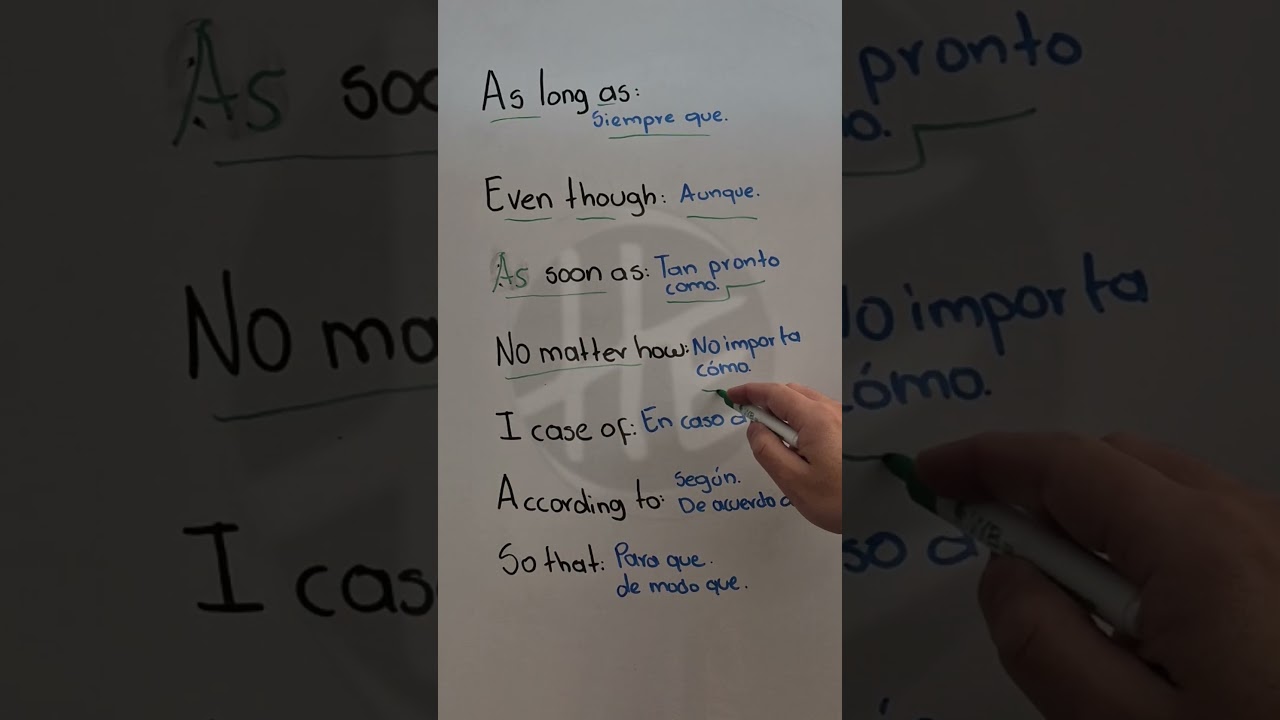 As long as:
Siempre que.
Even though: Aunque.
As soon as: Tan pronto
como.
No matter how: No importa
cómo.
I case of: En caso
According to: Según.
De acuerdo a
So that: Para que.
de modo que.